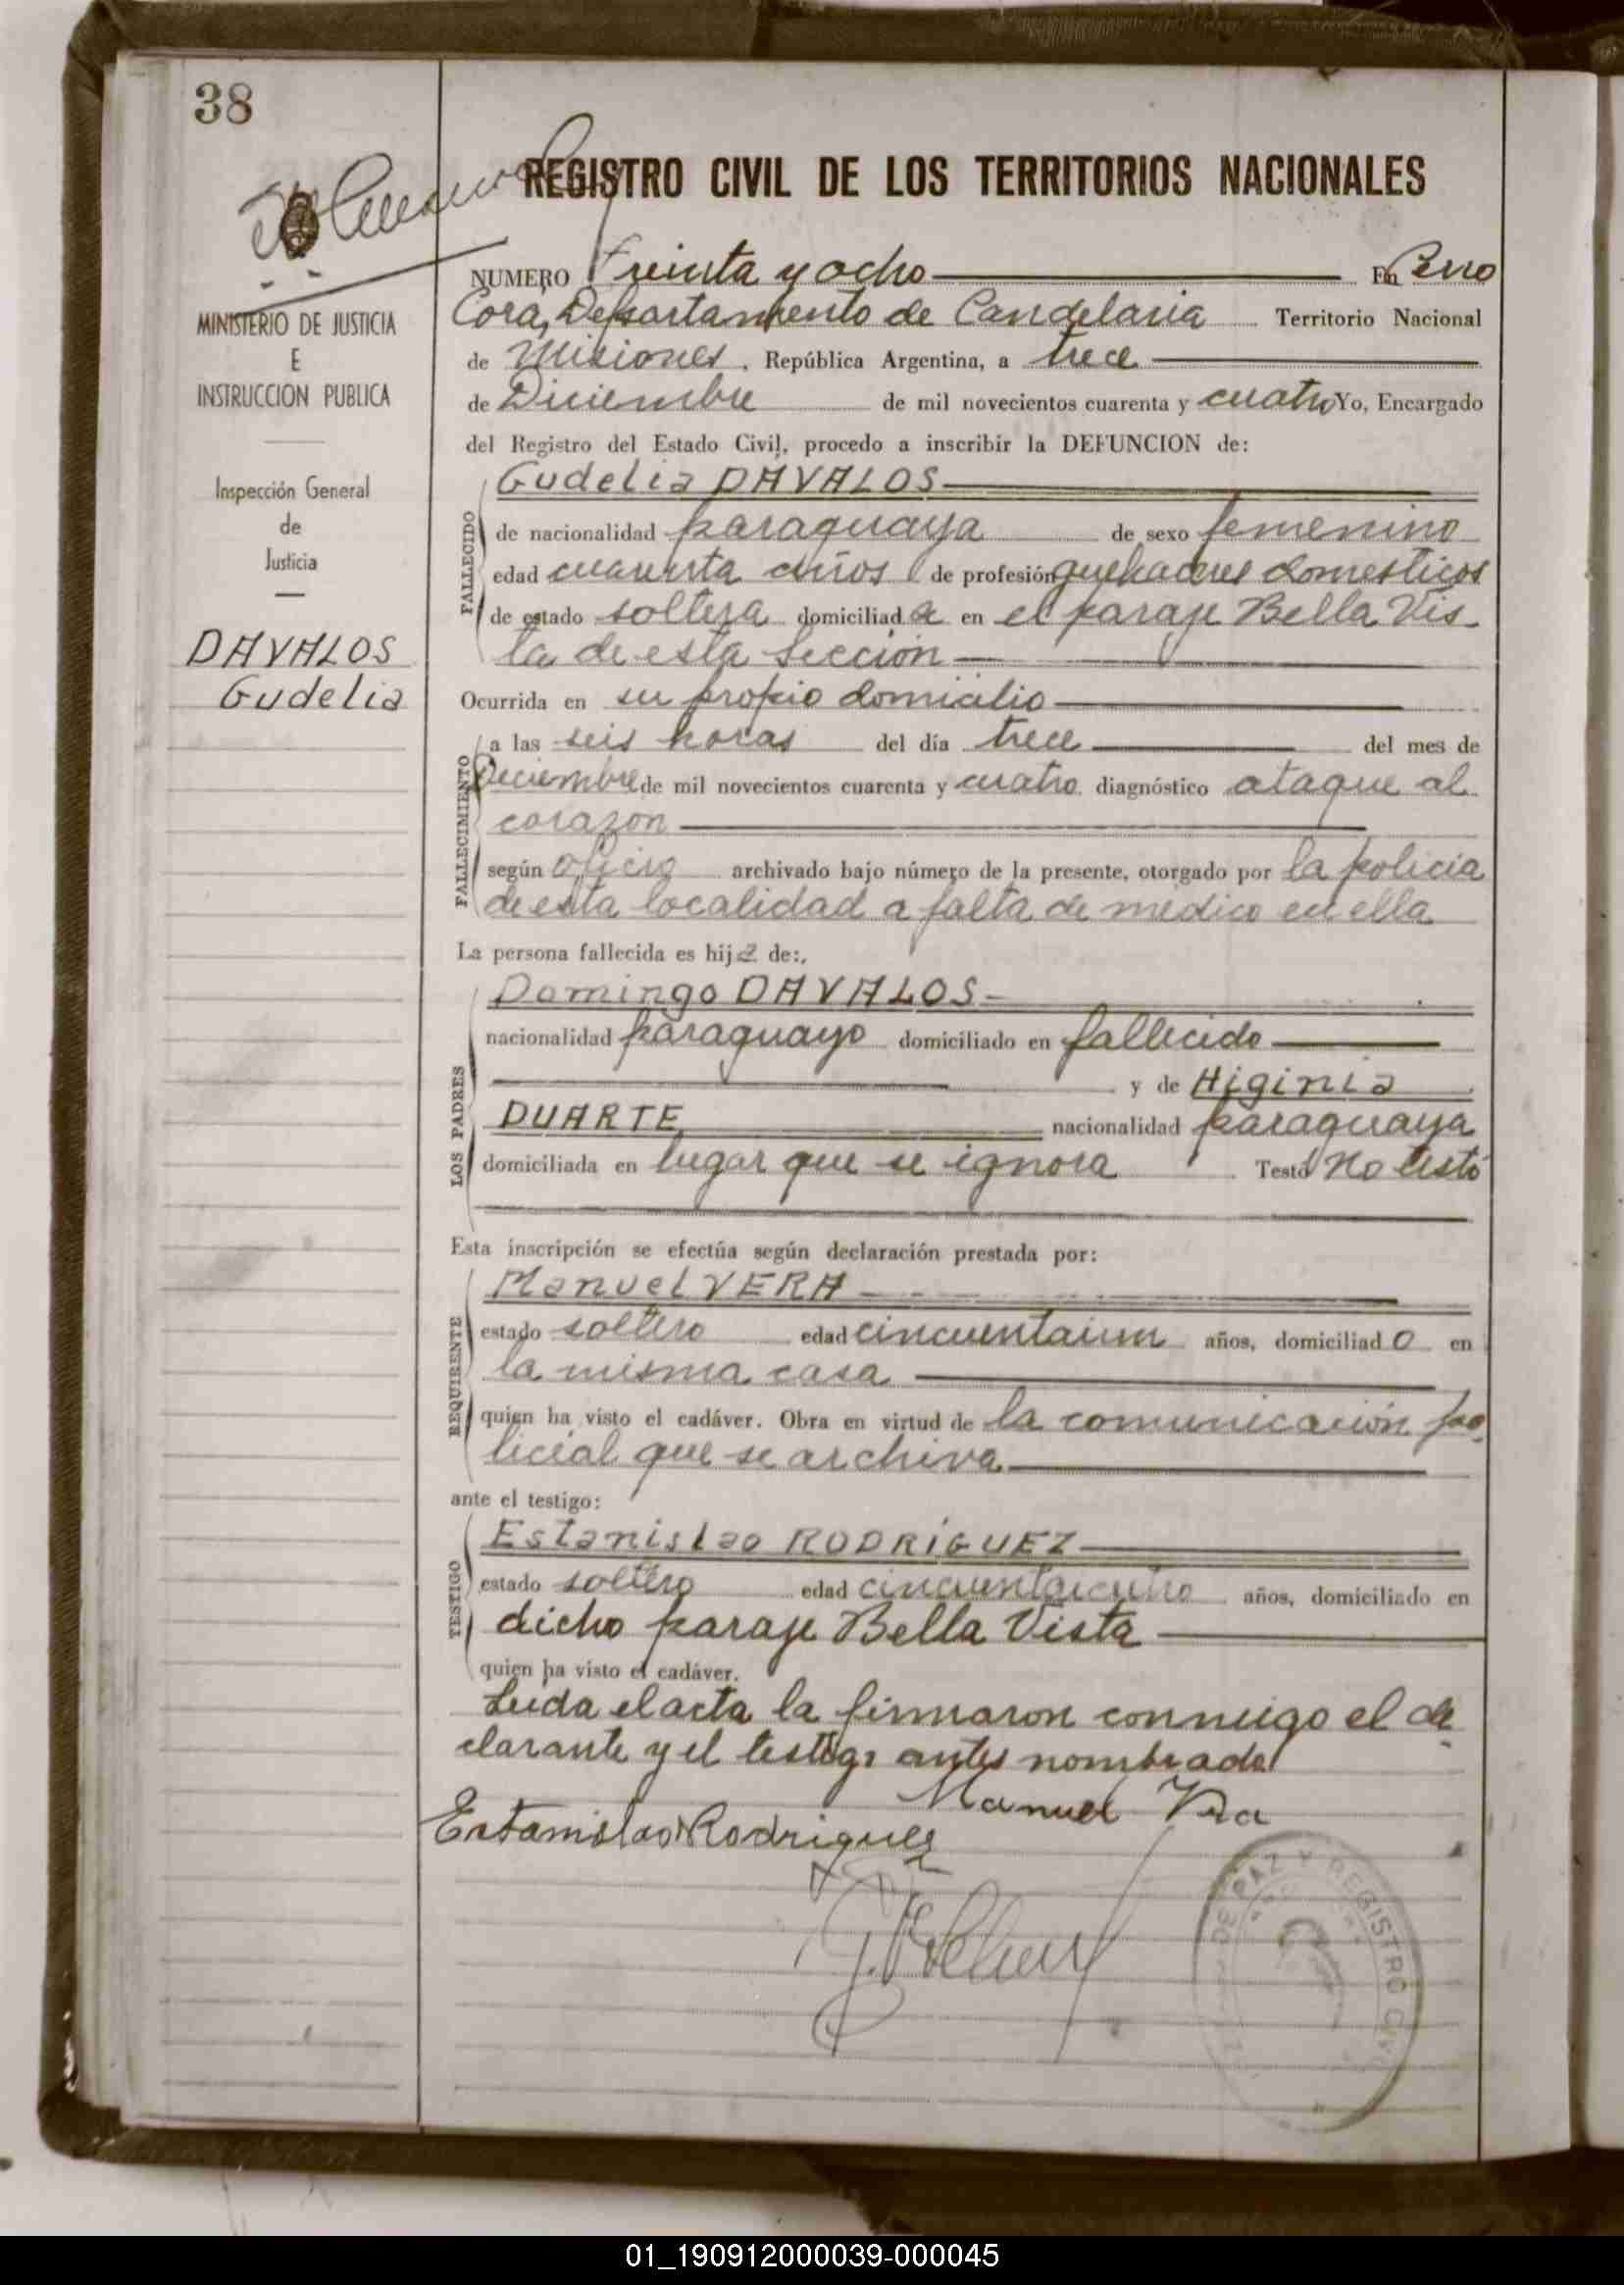 38
REGISTRO CIVIL DE LOS TERRITORIOS NACIONALES
NUMERO Treinta y ocho En Cerro
Corá, Departamento de Candelaria Territorio Nacional
de Misiones, República Argentina, a trece
de Diciembre de mil novecientos cuarenta y cuatro Yo, Encargado
del Registro del Estado Civil, procedo a inscribir la DEFUNCION de:
MINISTERIO DE JUSTICIA
E
INSTRUCCION PUBLICA
Inspección General
de
Justicia
DAVALOS
Gudelia
FALLECIDO
Gudelia DAVALOS
de nacionalidad paraguaya de sexo femenino
edad cuarenta años de profesión quehaceres domesticos
de estado soltera domiciliada en el paraje Bella Vis-
ta de esta Sección
Ocurrida en su propio domicilio
FALLECIMIENTO
a las seis horas del día trece del mes de
Diciembre de mil novecientos cuarenta y cuatro diagnóstico ataque al
corazon
según oficio archivado bajo número de la presente, otorgado por la policia
de esta localidad a falta de médico en ella
La persona fallecida es hija de:
LOS PADRES
Domingo DAVALOS
nacionalidad paraguayo domiciliado en fallecido
y de Higinia
DUARTE nacionalidad paraguaya
domiciliada en lugar que se ignora Testó No testó
Esta inscripción se efectúa según declaración prestada por:
REQUIRENTE
Manuel VERA
estado soltero edad cincuentaiun años, domiciliado en
la misma casa
quien ha visto el cadáver. Obra en virtud de la comunicación po-
licial que se archiva
ante el testigo:
TESTIGO
Estanislao RODRÍGUEZ
estado soltero edad años, domiciliado en
dicho paraje Bella Vista
quien ha visto el cadáver.
Leida el acta la firmaron conmigo el de-
clarante y el testigo antes nombrado
Manuel Vera
Estanislao Rodriguez
DE PAZ Y REGISTRO CIVIL
01_190912000039-000045